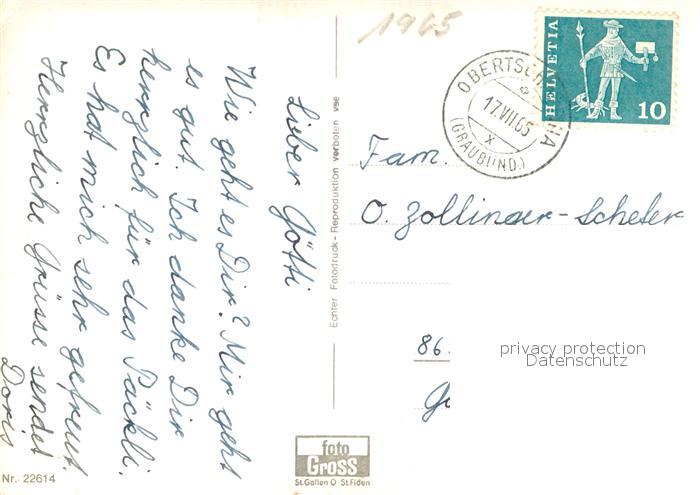 Lieber Götti
Wie geht es Dir? Mir geht
es gut. Ich danke Dir
herzlich für das Päckli.
Es hat mich sehr gefreut.
Herzliche Grüsse sendet
Doris
1965
HELVETIA
10
17.VII.65
(GRAUBÜND.)
Fam.
O. Zollinger-Scheler
86.
privacy protection
Datenschutz
Echter Fotodruck - Reproduktion verboten vse
foto
Gross
St. Gallen O St. Fiden
Nr. 22614